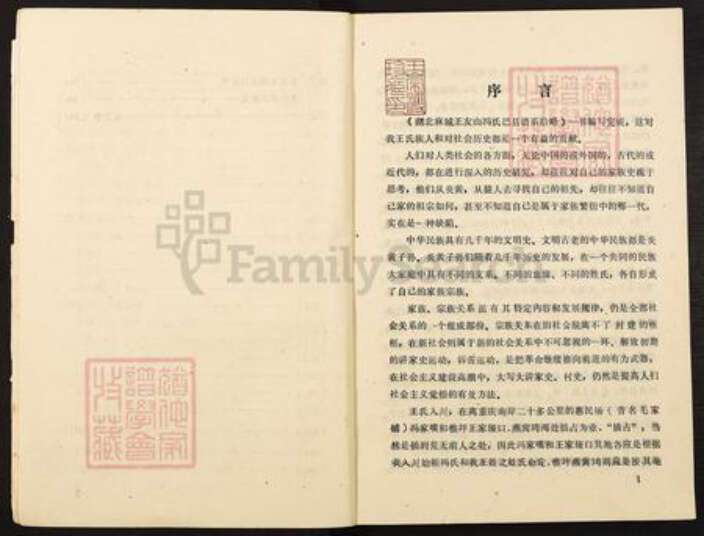 序 言
《湖北麻城王友山冯氏巴县谱系后略》一书编写完成，这对
我王氏族人和对社会历史都是一个有益的贡献。
人们对人类社会的各方面，无论中国的或外国的，古代的或
近代的，都在进行深入的历史研究，却往往对自己的家族史疏于
思考，他们从炎黄，从猿人去寻找自己的祖先，却往往不知道自
己家的祖宗如何，甚至不知道自己是属于家族繁衍中的哪一代，
实在是一种缺陷。
中华民族具有几千年的文明史。文明古老的中华民族都是炎
黄子孙。炎黄子孙们随着几千年历史的发展，在一个共同的民族
大家庭中具有不同的支系。不同的血缘、不同的姓氏，各自形成
了自己的家族宗族。
家族、宗族关系固有其特定内容和发展规律，仍是全部社
会关系的一个组成部份。宗族关系在旧社会脱离不了封建的桎
梏，在新社会则属于新的社会关系中不可忽视的一环。解放初期
的讲家史运动，诉苦运动，是把革命继续推向前进的有力武器，
在社会主义建设高潮中，大写大讲家史、村史，仍然是提高人们
社会主义觉悟的有效方法。
王氏入川，在离重庆南岸二十多公里的惠民场（昔名毛家
铺）冯家嘴和樵坪王家垭口、燕窝 两处插占为业。“插占”，当
然是插到荒无前人之处，因此冯家嘴和王家垭口其地各应是根据
1
FamilySearch
譜學會
收藏